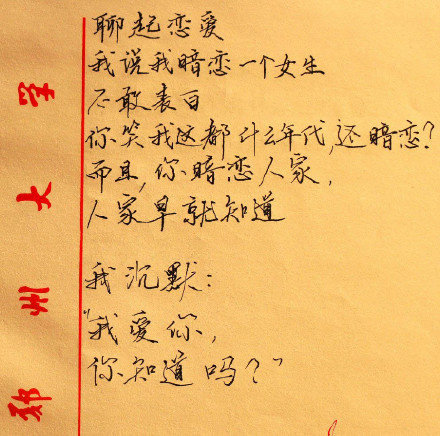 聊起恋爱
我说我暗恋一个女生
不敢表白
你笑我这都什么年代,还暗恋?
而且,你暗恋人家,
人家早就知道
我沉默:
"我爱你,
你知道吗?"
郑州大学